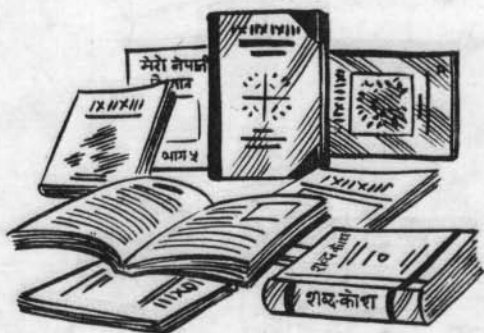 मेरो नेपाली
किताब
भाग ५
शब्दकोश
१०
शब्द-कोश